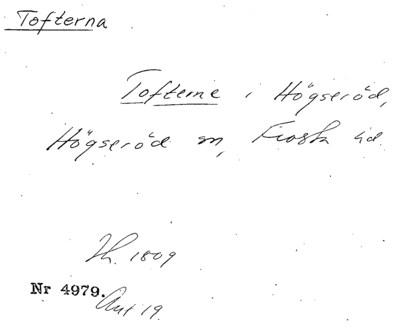 Tofterna
Tofterne i Högseröd,
Högseröd sn, Frosta hd.
Jh. 1809
Nr 4979.
Akt 19